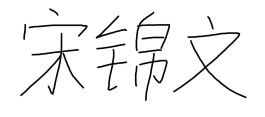 宋锦文